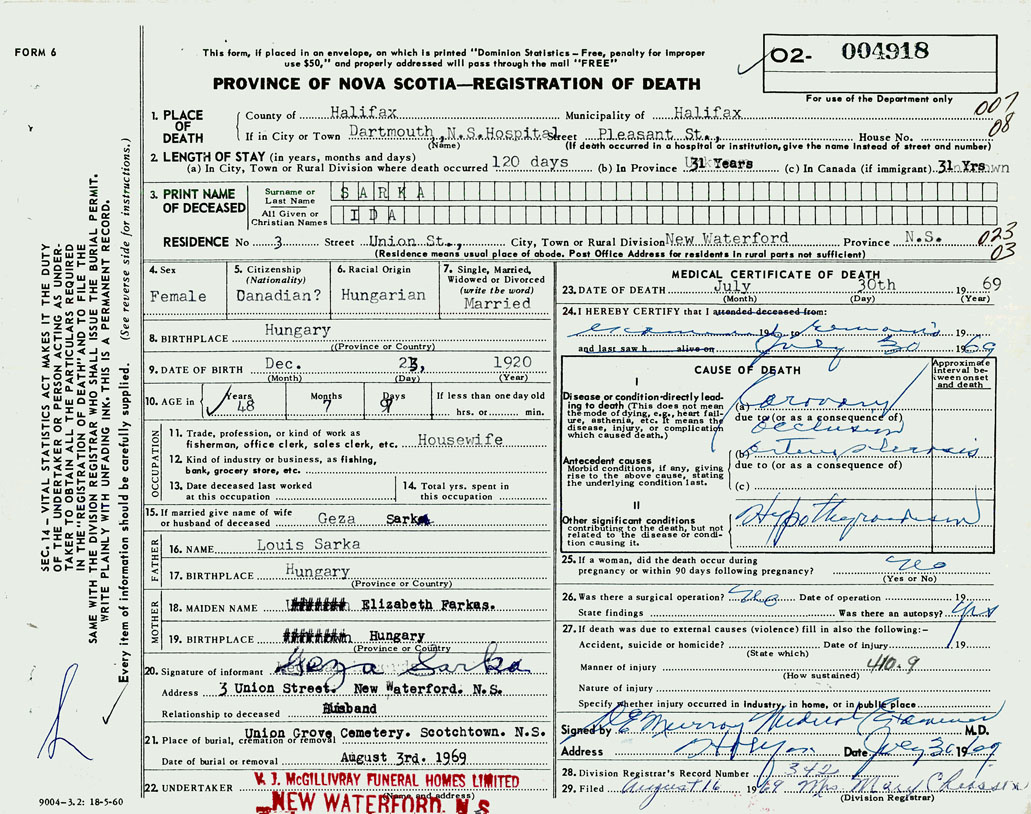 FORM 6
This form, if placed in an envelope, on which is printed "Dominion Statistics – Free, penalty for improper
use $50," and properly addressed will pass through the mail "FREE"
PROVINCE OF NOVA SCOTIA—REGISTRATION OF DEATH
O2- 004918
For use of the Department only
007
08
1. PLACE OF DEATH
County of Halifax Municipality of Halifax
If in City or Town Dartmouth, N.S.Hospital Street Pleasant St., House No.
(Name) (If death occurred in a hospital or institution, give the name instead of street and number)
2. LENGTH OF STAY (in years, months and days)
(a) In City, Town or Rural Division where death occurred 120 days (b) In Province 31 Years (c) In Canada (if immigrant) 31 Yrs
3. PRINT NAME OF DECEASED
Surname or Last Name SARKA
All Given or Christian Names IDA
RESIDENCE No 3 Street Union St., City, Town or Rural Division New Waterford Province N.S.
023
03
(Residence means usual place of abode. Post Office Address for residents in rural parts not sufficient)
4. Sex
Female
5. Citizenship (Nationality)
Danadian?
6. Racial Origin
Hungarian
7. Single, Married, Widowed or Divorced (write the word)
Married
8. BIRTHPLACE Hungary
((Province or Country)
9. DATE OF BIRTH Dec. 23, 1920
(Month) (Day) (Year)
10. AGE in Years 48 Months 7 Days If less than one day old hrs. or min.
OCCUPATION
11. Trade, profession, or kind of work as
fisherman, office clerk, sales clerk, etc. Housewife
12. Kind of industry or business, as fishing,
bank, grocery store, etc.
13. Date deceased last worked
at this occupation
14. Total yrs. spent in
this occupation
15. If married give name of wife
or husband of deceased Geza Sarka
FATHER
16. NAME Louis Sarka
17. BIRTHPLACE Hungary
(Province or Country)
MOTHER
18. MAIDEN NAME Elizabeth Farkas.
19. BIRTHPLACE Hungary
(Province or Country)
20. Signature of informant Geza Sarka
Address 3 Union Street. New Waterford. N.S.
Relationship to deceased Husband
21. Place of burial, cremation or removal Union Grove Cemetery. Scotchtown. N.S.
Date of burial or removal August 3rd. 1969
22. UNDERTAKER V. J. McGILLIVRAY FUNERAL HOMES LIMITED
(Name and address)
NEW WATERFORD, N.S
MEDICAL CERTIFICATE OF DEATH
23. DATE OF DEATH July 30th 1969
(Month) (Day) (Year)
24. I HEREBY CERTIFY that I attended deceased from:
19 to remains 19
and last saw h alive on July 30 1969
CAUSE OF DEATH
Approximate interval between onset and death
I
Disease or condition directly leading to death (This does not mean the mode of dying, e.g., heart failure, asthenia, etc. It means the disease, injury, or complication which caused death.)
(a) Coronary
due to (or as a consequence of)
occlusion
Antecedent causes
Morbid conditions, if any, giving rise to the above cause, stating the underlying condition last.
(b) arteriosclerosis
due to (or as a consequence of)
(c)
II
Other significant conditions
contributing to the death, but not related to the disease or condition causing it.
Hypothyroidism
25. If a woman, did the death occur during
pregnancy or within 90 days following pregnancy? No
(Yes or No)
26. Was there a surgical operation? No Date of operation 19
State findings Was there an autopsy? Yes
27. If death was due to external causes (violence) fill in also the following:–
Accident, suicide or homicide? Date of injury 19
(State which)
Manner of injury 410.9
(How sustained)
Nature of injury
Specify whether injury occurred in industry, in home, or in public place
Signed by Murray Medical Examiner M.D.
Address Date July 30 1969
28. Division Registrar's Record Number 342
29. Filed August 16 1969 Mrs Mary
(Division Registrar)
SEC. 14 – VITAL STATISTICS ACT MAKES IT THE DUTY
OF THE UNDERTAKER OR PERSON ACTING AS UNDER-
TAKER TO OBTAIN ALL THE PARTICULARS REQUIRED
IN THE "REGISTRATION OF DEATH" AND TO FILE THE
SAME WITH THE DIVISION REGISTRAR WHO SHALL ISSUE THE BURIAL PERMIT.
WRITE PLAINLY WITH UNFADING INK. THIS IS A PERMANENT RECORD.
Every item of information should be carefully supplied. (See reverse side for instructions.)
9004–3.2: 18-5-60